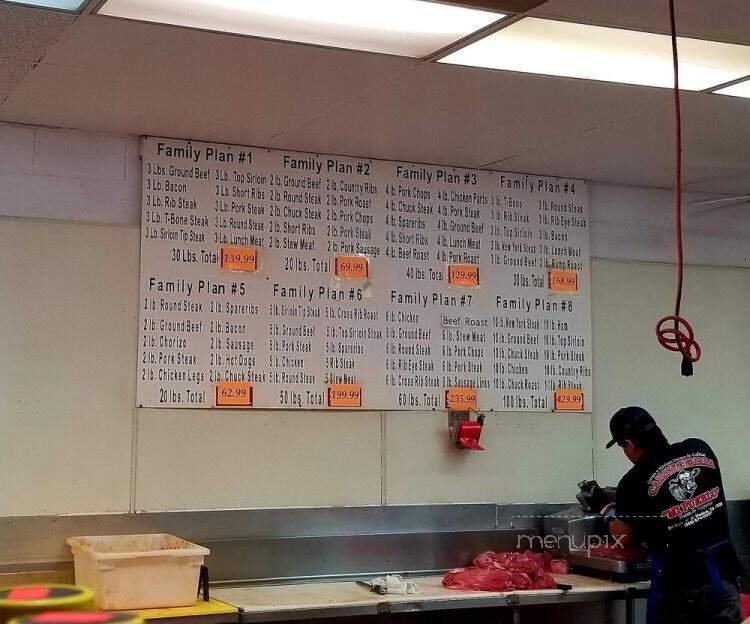 Family Plan #1
3 Lbs. Ground Beef 3 Lb. Top Sirloin
3 Lb. Bacon 3 Lb. Short Ribs
3 Lb. Rib Steak 3 Lb. Pork Steak
3 Lb. T-Bone Steak 3 Lb. Round Steak
3 Lb. Sirloin Tip Steak 3 Lb. Lunch Meat
30 Lbs. Total 139.99
Family Plan #2
2 lb. Ground Beef 2 lb. Country Ribs
2 lb. Round Steak 2 lb. Pork Roast
2 lb. Chuck Steak 2 lb. Pork Chops
2 lb. Short Ribs 2 lb. Pork Steak
2 lb. Stew Meat 2 lb. Pork Sausage
20 lbs. Total 69.99
Family Plan #3
4 lb. Pork Chops 4 lb. Chicken Parts
4 lb. Chuck Steak 4 lb. Pork Steak
4 lb. Spareribs 4 lb. Ground Beef
4 lb. Short Ribs 4 lb. Lunch Meat
4 lb. Beef Roast 4 lb. Pork Roast
40 lbs. Total 129.99
Family Plan #4
3 lb. T-Bone 3 lb. Round Steak
3 lb. Rib Steak 3 lb. Rib Eye Steak
3 lb. Top Sirloin 3 lb. Bacon
3 lb. New York Steak 3 lb. Lunch Meat
3 lb. Ground Beef 3 lb. Rump Roast
30 lbs. Total 168.99
Family Plan #5
2 lb. Round Steak 2 lb. Spareribs
2 lb. Ground Beef 2 lb. Bacon
2 lb. Chorizo 2 lb. Sausage
2 lb. Pork Steak 2 lb. Hot Dogs
2 lb. Chicken Legs 2 lb. Chuck Steak
20 lbs. Total 62.99
Family Plan #6
5 lb. Sirloin Tip Steak 5 lb. Cross Rib Roast
5 lb. Ground Beef 5 lb. Top Sirloin Steak
5 lb. Pork Steak 5 lb. Spareribs
5 lb. Chicken 5 lb. Rib Steak
5 lb. Round Steak 5 lb. Stew Meat
50 lbs. Total 199.99
Family Plan #7
6 lb. Chicken Beef Roast
6 lb. Ground Beef 6 lb. Stew Meat
6 lb. Round Steak 6 lb. Pork Chops
6 lb. Rib Eye Steak 6 lb. Pork Steak
6 lb. Cross Rib Steak 6 lb. Sausage Links
60 lbs. Total 235.99
Family Plan #8
10 lb. New York Steak 10 lb. Ham
10 lb. Ground Beef 10 lb. Top Sirloin
10 lb. Chuck Steak 10 lb. Pork Steak
10 lb. Chicken 10 lb. Country Ribs
10 lb. Chuck Roast 10 lb. Rib Steak
100 lbs. Total 429.99
menupix